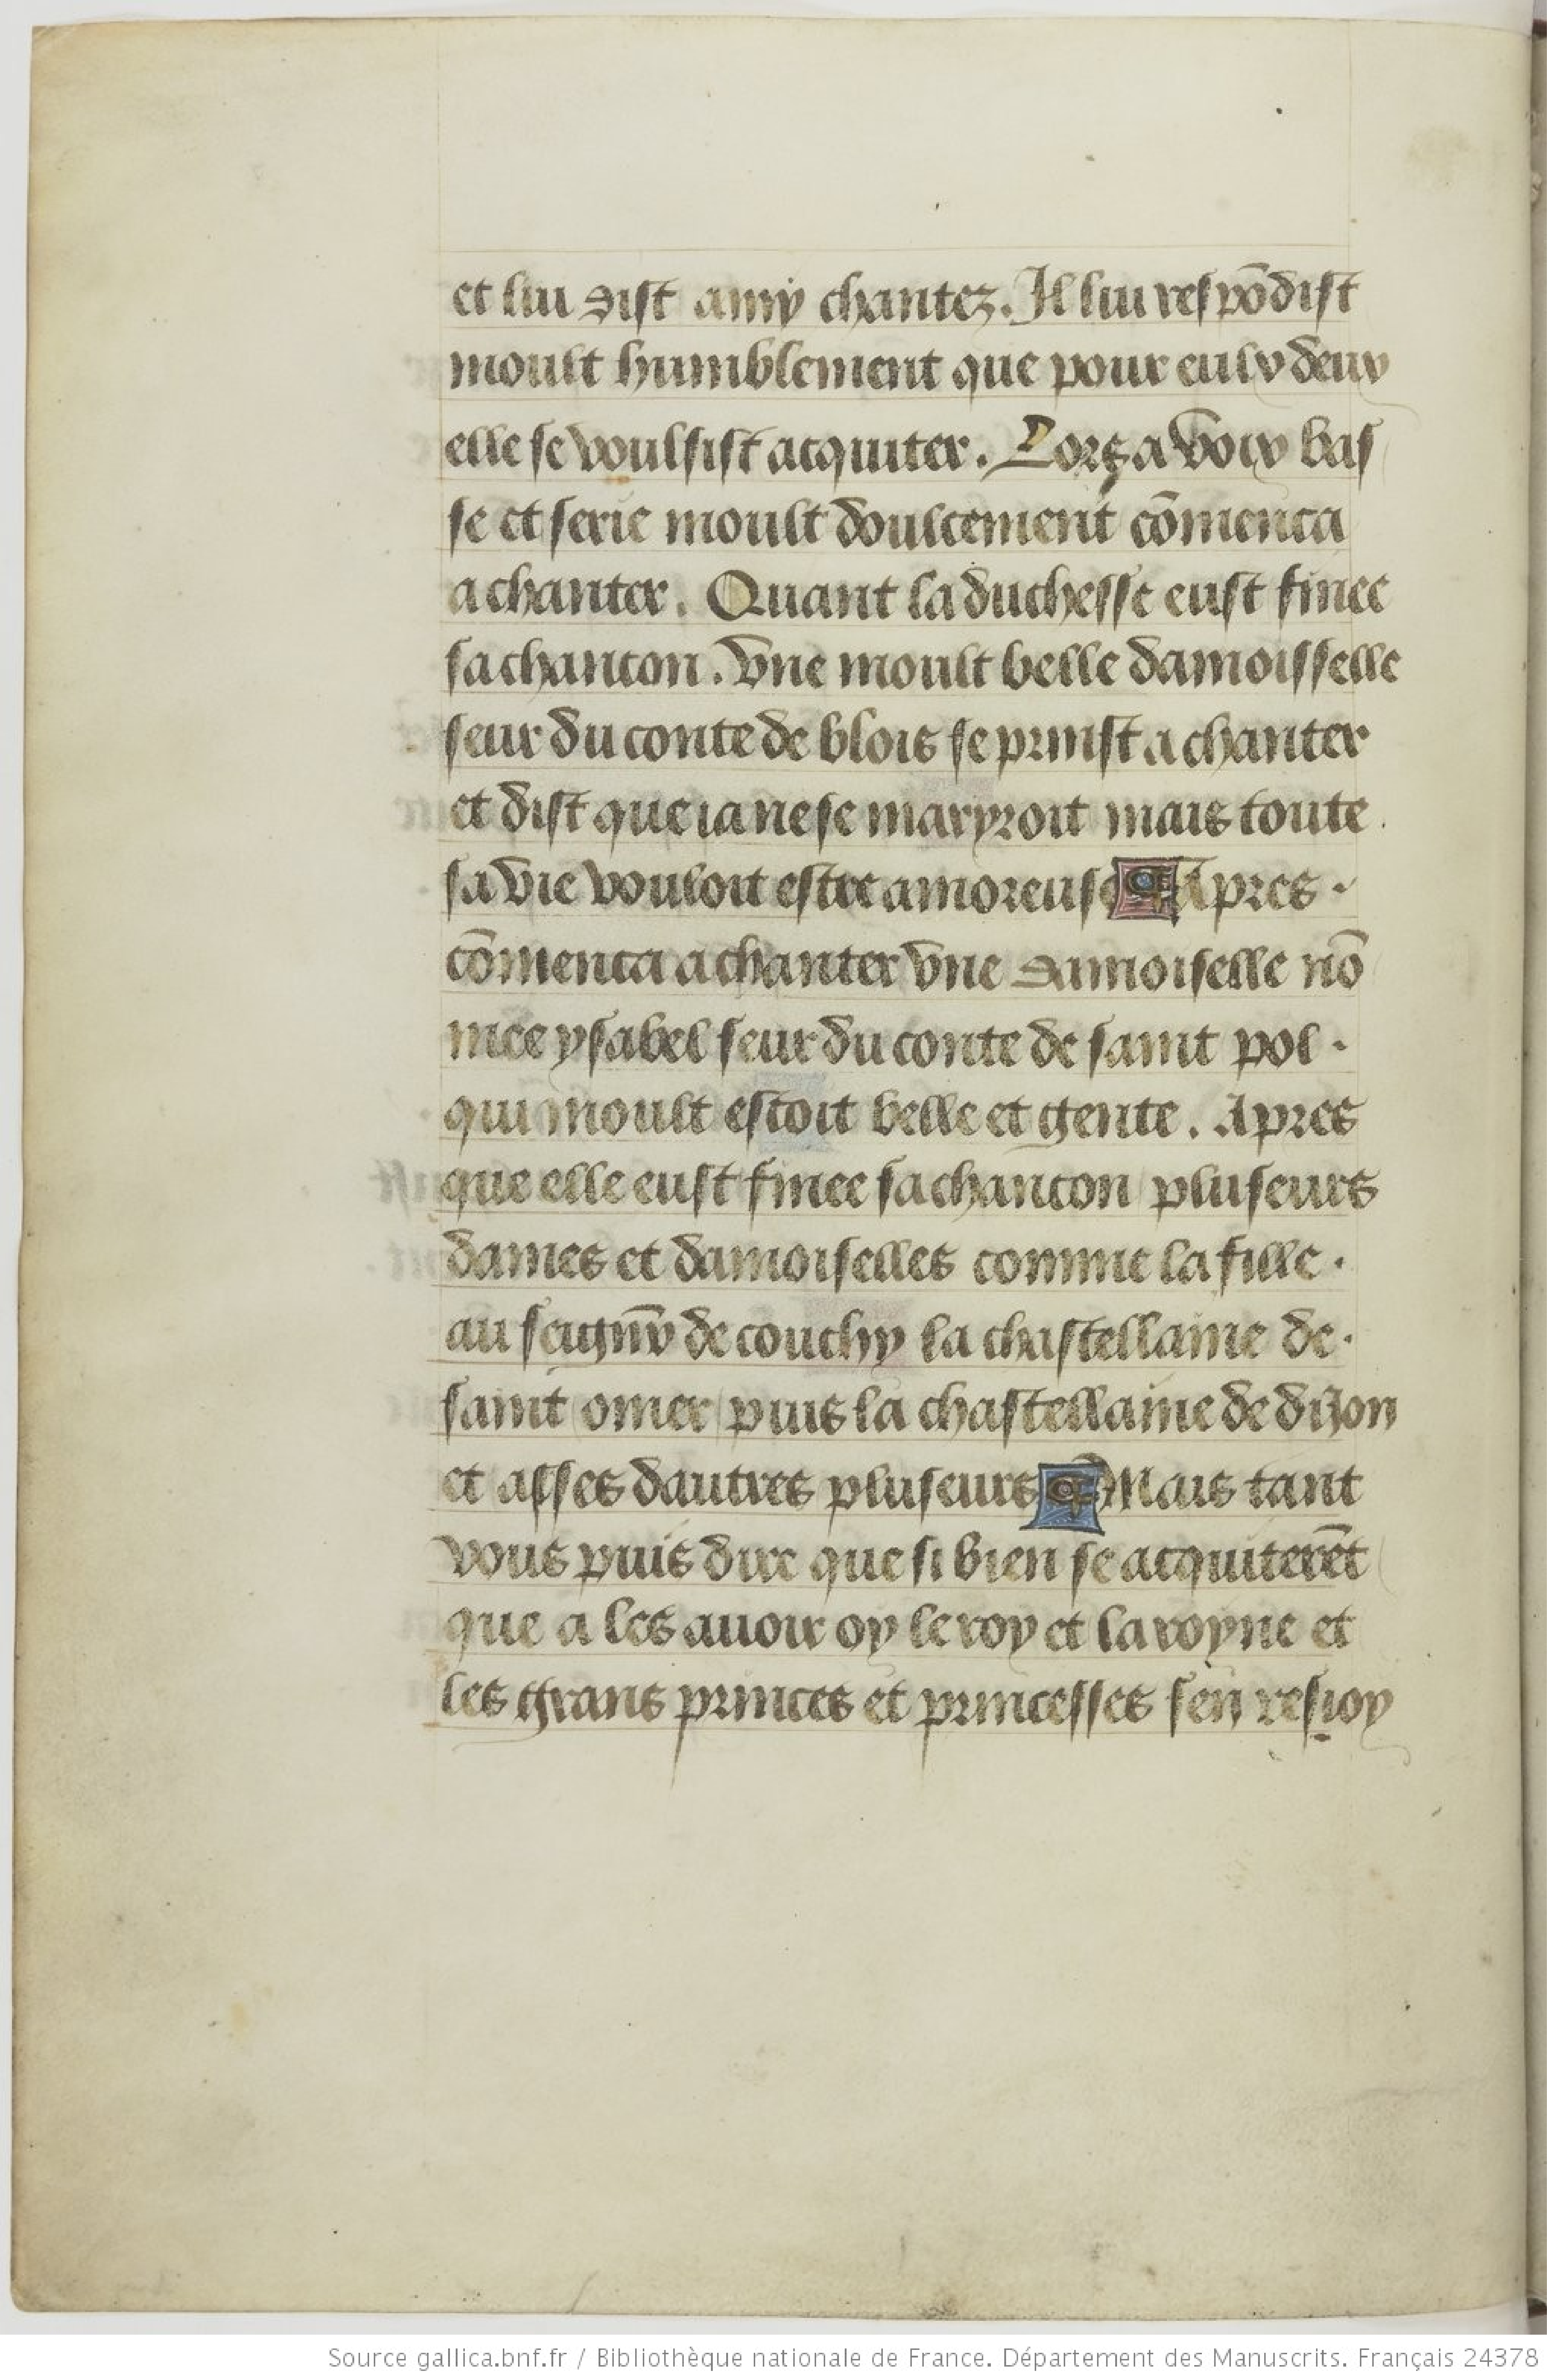 et luy dist amy chantez. Il luy respōdist
moult humblement que pour eulx deux
elle se voulsist acquiter. Lors a voix bas
se et serie moult doulcement cōmenca
a chanter. Quant la duchesse eust finee
sa chancon. Vne moult belle damoisselle
seur du conte de blois se prinst a chanter
et dist que ia ne se maryroit mais toute
sa vie vouloit estre amoreuse ¶ Apres
cōmenca a chanter vne damoiselle nō
mee ysabel seur du conte de saint pol
qui moult estoit belle et gente. Apres
que elle eust finee sa chancon pluseurs
dames et damoiselles comme la fille
au seigñr de couchy la chastellaine de
saint omer puis la chastellaine de dijon
et asses dautres pluseurs ¶ Mais tant
vous puis dire que si bien se acquiterēt
que a les auoir oy le roy et la royne et
les grans princes et princesses sen resioy
Source gallica.bnf.fr / Bibliothèque nationale de France. Département des Manuscrits. Français 24378